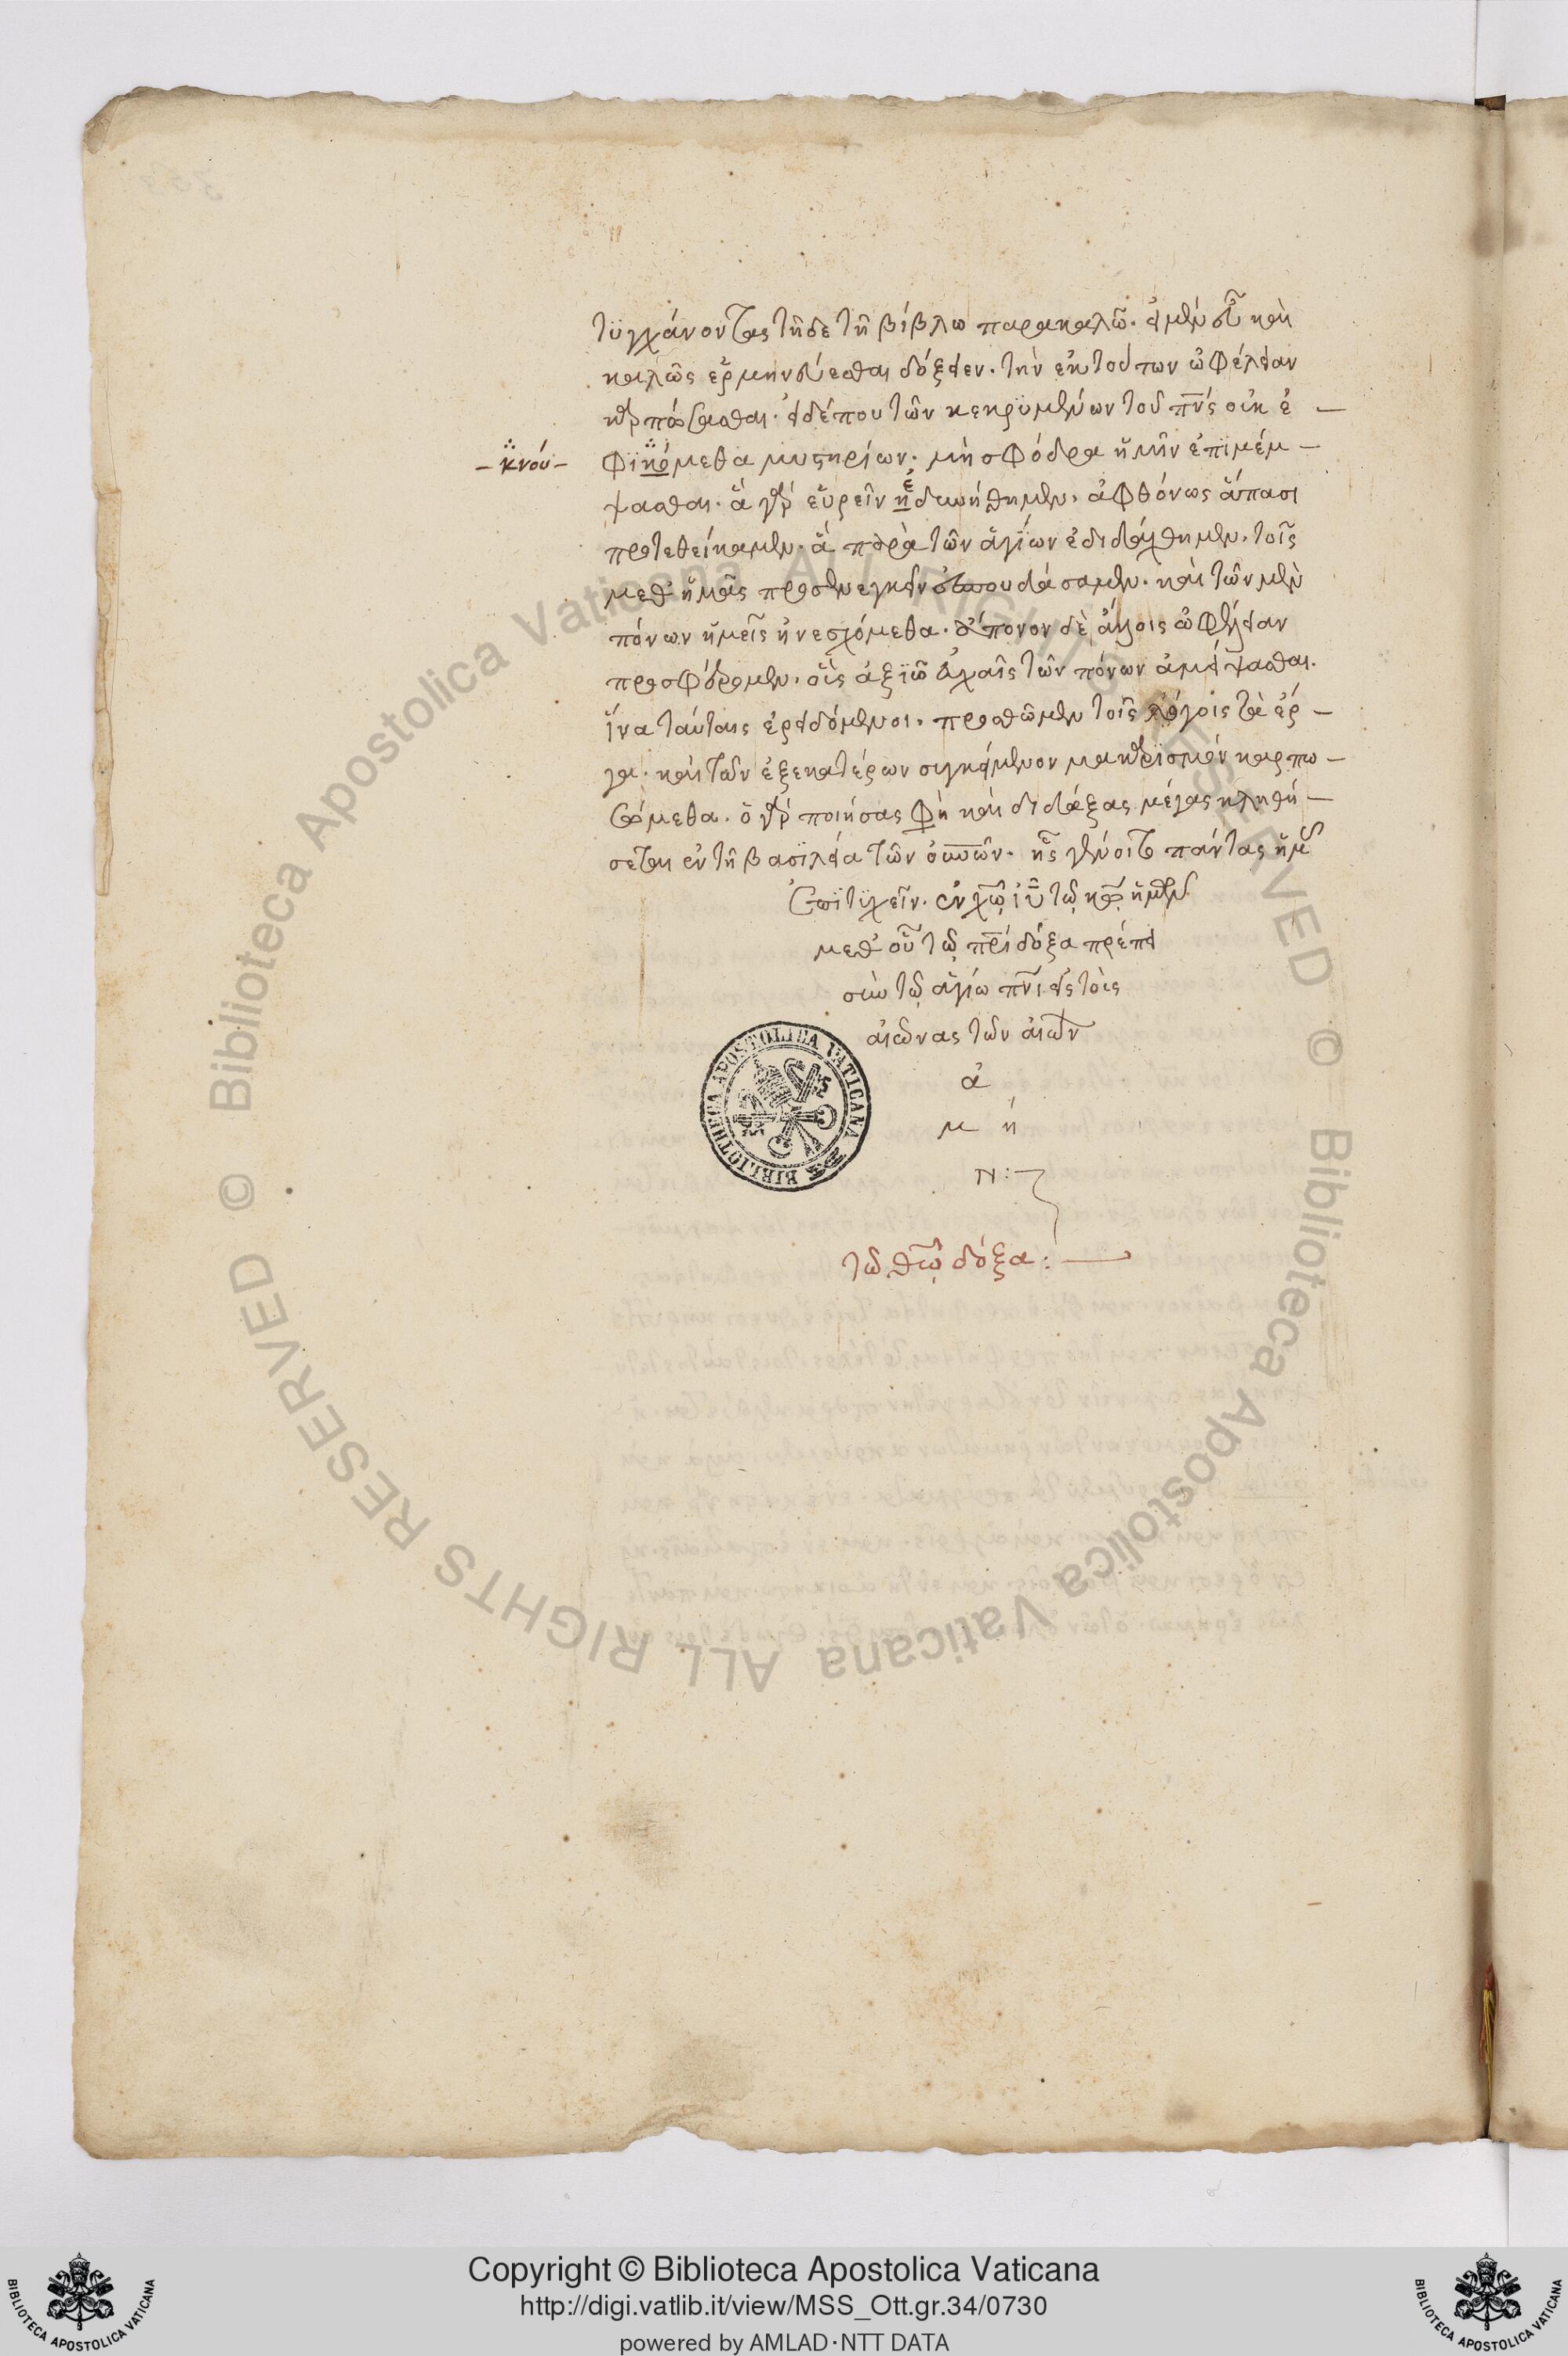 τυγχάνοντας τῇδε τῇ βίβλω παρακαλῶ. εἰ μὲν εὖ καὶ
καλῶς ἑρμηνεύεσθαι δόξειεν. τὴν ἐκ τούτων ὠφέλειαν
καρπώσασθαι. εἰ δέ που τῶν κεκρυμμένων τοῦ πνς οὐκ ἐ
- κνού -
φικόμεθα μυστηρίων. μὴ σφόδρα ἡμῖν ἐπιμέμ
ψασθαι. ἃ γὰρ εὑρεῖν ἠδυνήθημεν. ἀφθόνως ἅπασι
προτεθείκαμεν. ἃ παρὰ τῶν ἁγίων ἐδιδάχθημεν. τοῖς
μεθ' ἡμᾶς προσενεγκεῖν ἐσπουδάσαμεν. καὶ τῶν μὲν
πόνων ἡμεῖς ἠνεσχόμεθα. ἄπονον δὲ ἄλλοις ὠφέλειαν
προσφέρομεν. οὓς ἀξιῶ εὐχαῖς τῶν πόνων ἀμείψασθαι.
ἵνα ταύταις ἐρειδόμενοι. προσθῶμεν τοῖς λόγοις τὰ ἔρ
γα. καὶ τὸν ἐξ ἑκατέρων συγκείμενον μακαρισμὸν καρπω
σόμεθα. ὁ γὰρ ποιήσας φη καὶ διδάξας μέγας κληθή
σεται ἐν τῇ βασιλεία τῶν οὐνῶν. ἧς γένοιτο πάντας ἡμᾶς
ἐπιτυχεῖν. ἐν χω ιυ τῷ κω ἡμῶν
μεθ' οὗ τῷ πρι δόξα πρέπει
σὺν τῷ ἁγίω πνι εἰς τοὺς
αἰῶνας τῶν αἰών
ἀ
μ ή
ν:
τῷ θω δόξα:
BIBLIOTHECA APOSTOLICA VATICANA
© Biblioteca Apostolica Vaticana ALL RIGHTS RESERVED © Biblioteca Apostolica Vaticana ALL RIGHTS RESERVED
Copyright © Biblioteca Apostolica Vaticana
http://digi.vatlib.it/view/MSS_Ott.gr.34/0730
powered by AMLAD·NTT DATA
BIBLIOTECA APOSTOLICA VATICANA
BIBLIOTECA APOSTOLICA VATICANA